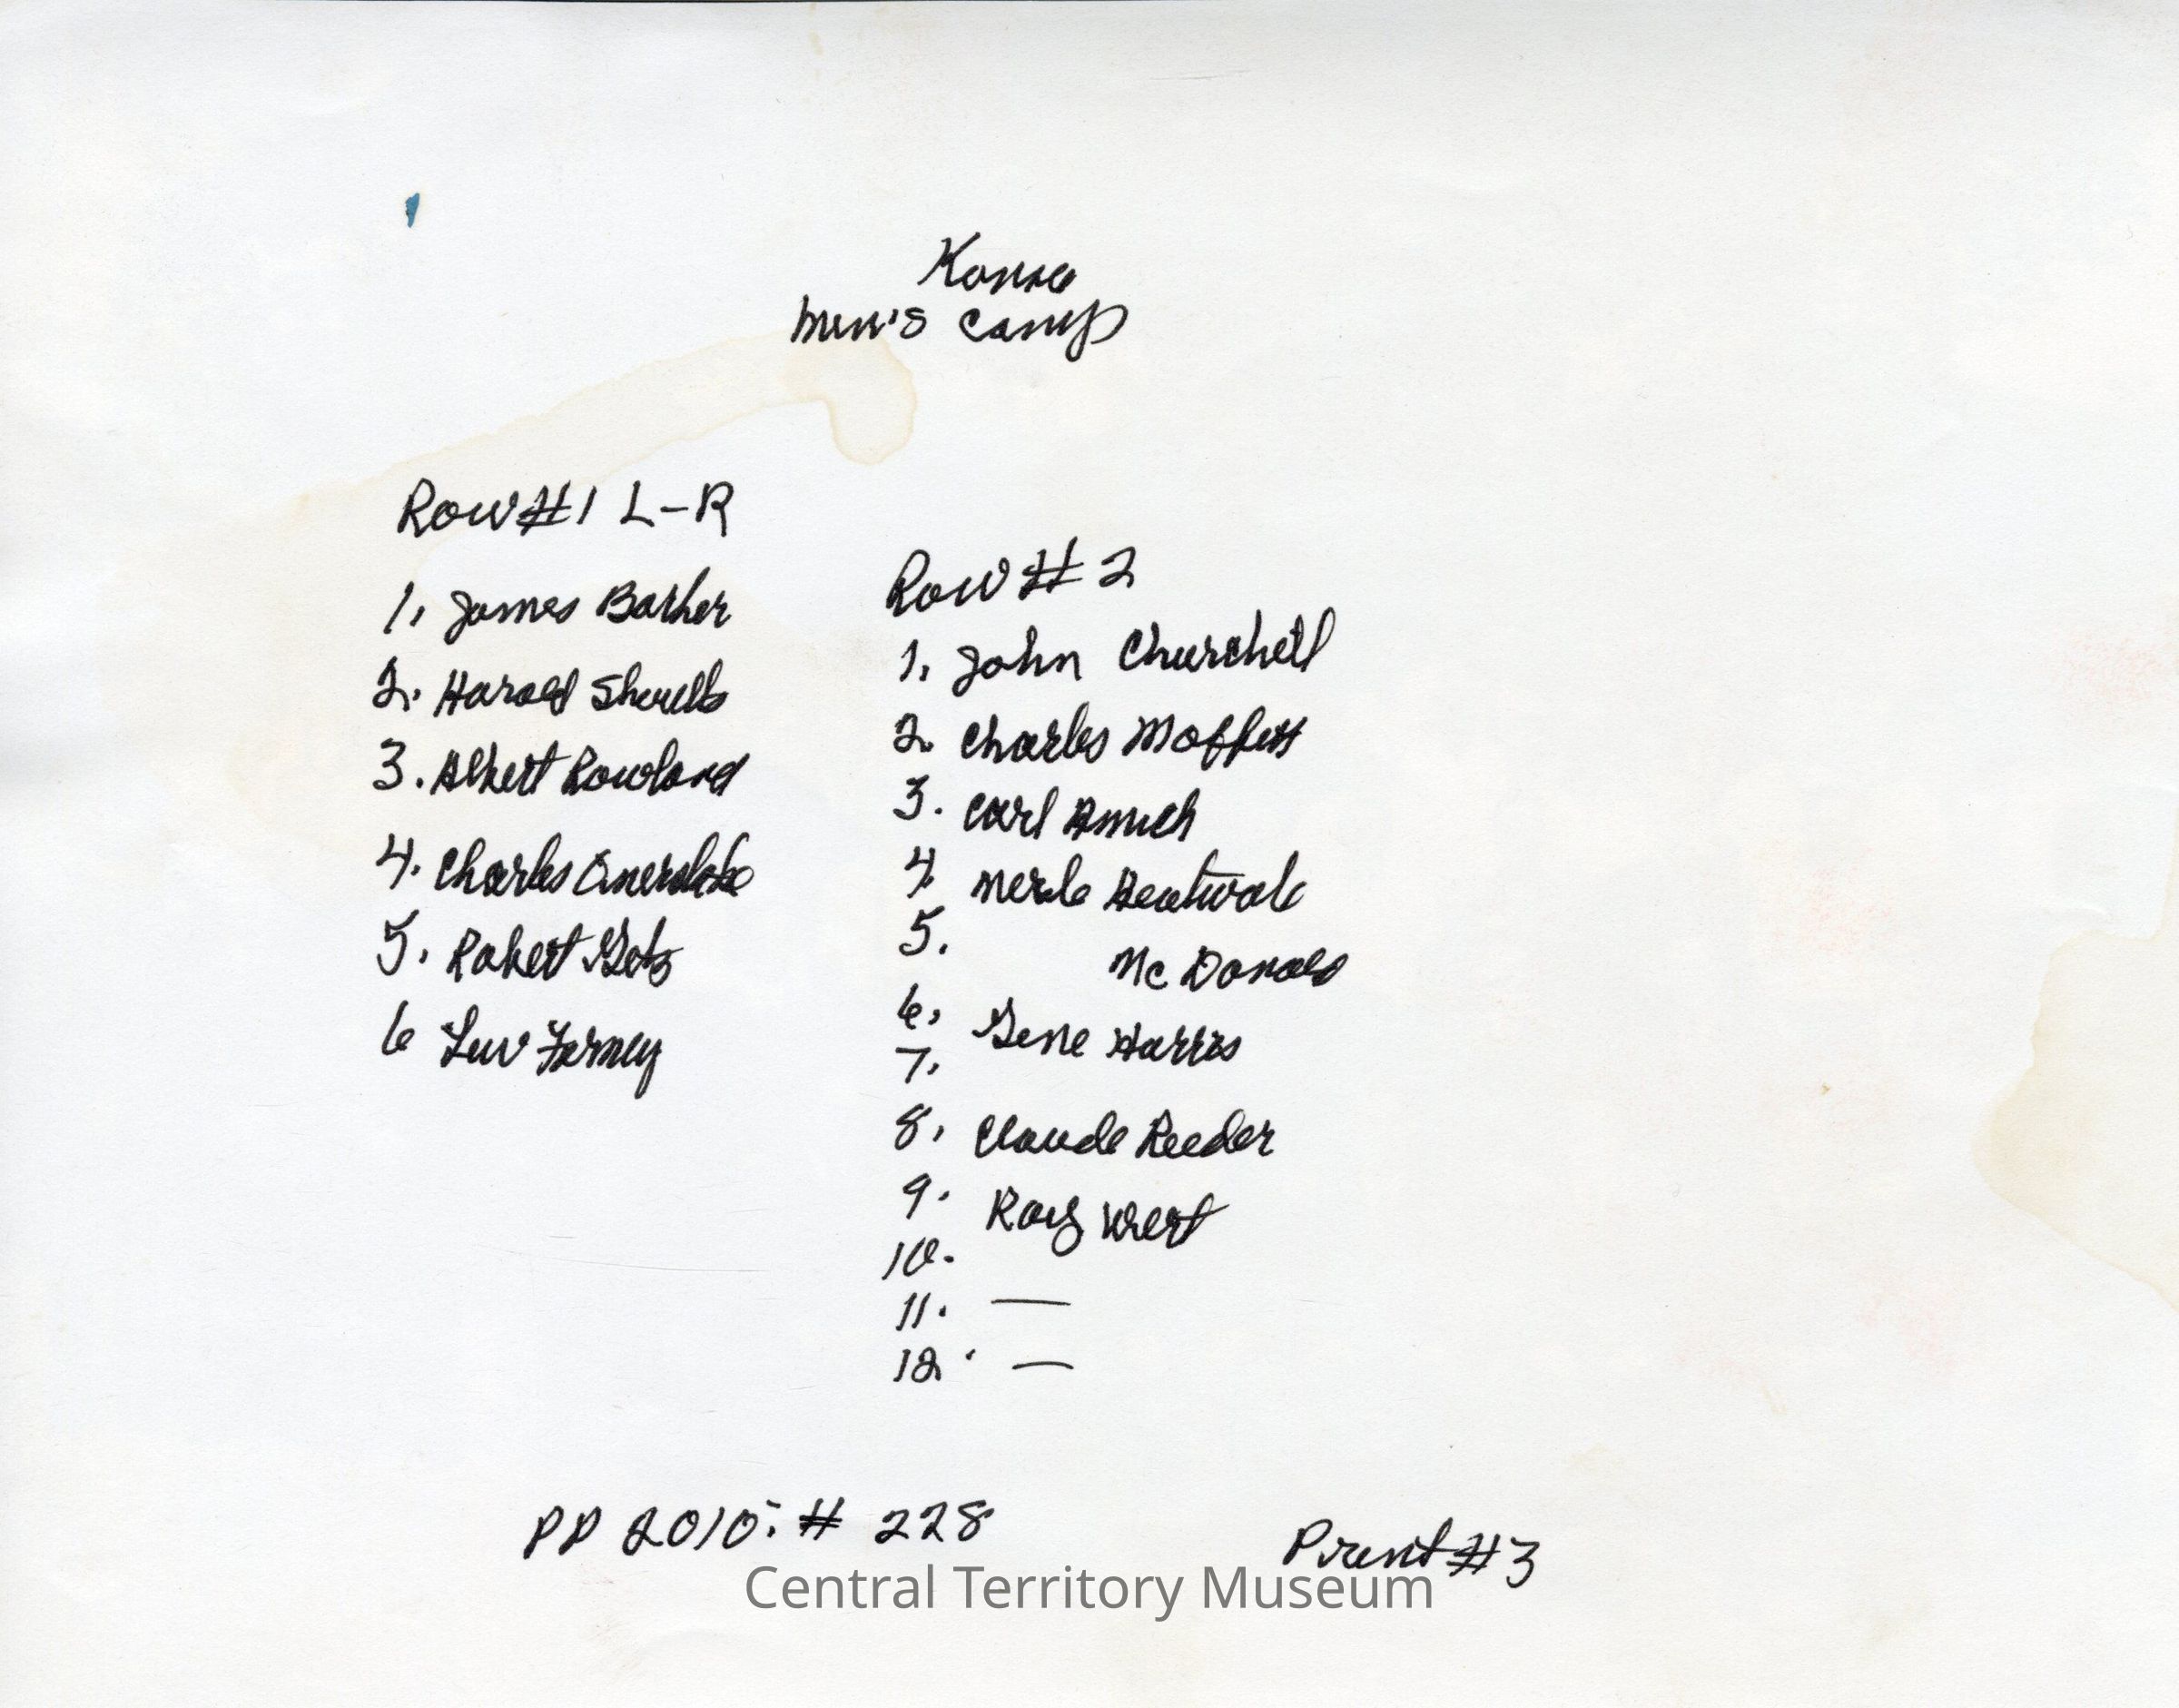 Men's Camp
Row #1 L-R
1. James Barker
2. Harold
3. Albert Rowland
4. Charles
5. Robert Getz
6 Lew
Row #2
1. John Churchill
2. Charles Moffett
3. Carl
4. Merle
5. McDonald
6. Gene Harris
7.
8. Claude Reeder
9. Roy Wert
10.
11. —
12. —
PD 2010: # 228
Print #3
Central Territory Museum